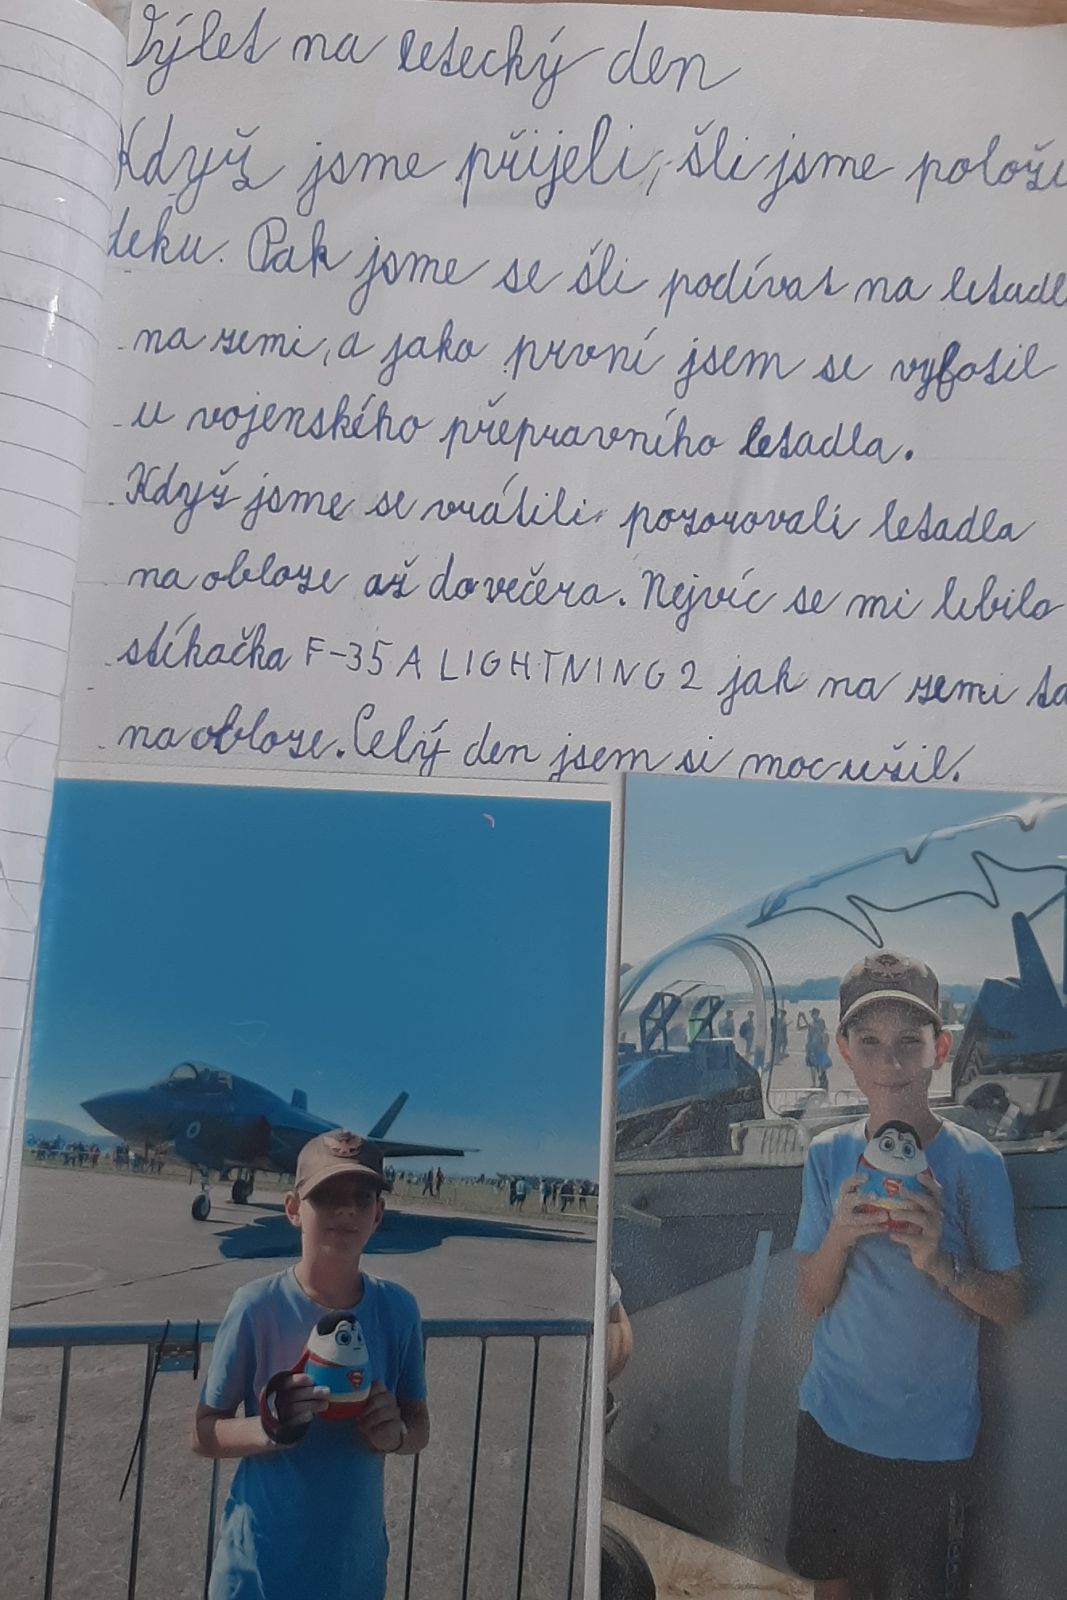 Výlet na letecký den
Když jsme přijeli, šli jsme polož
deku. Pak jsme se šli podívat na letadl
na zemi, a jako první jsem se vyfotil
u vojenského přepravního letadla.
Když jsme se vrátili pozorovali letadla
na obloze až do večera. Nejvíc se mi lebilo
stíhačka F-35 A LIGHTNING 2 jak na zemi ta
na obloze. Celý den jsem si moc užil.